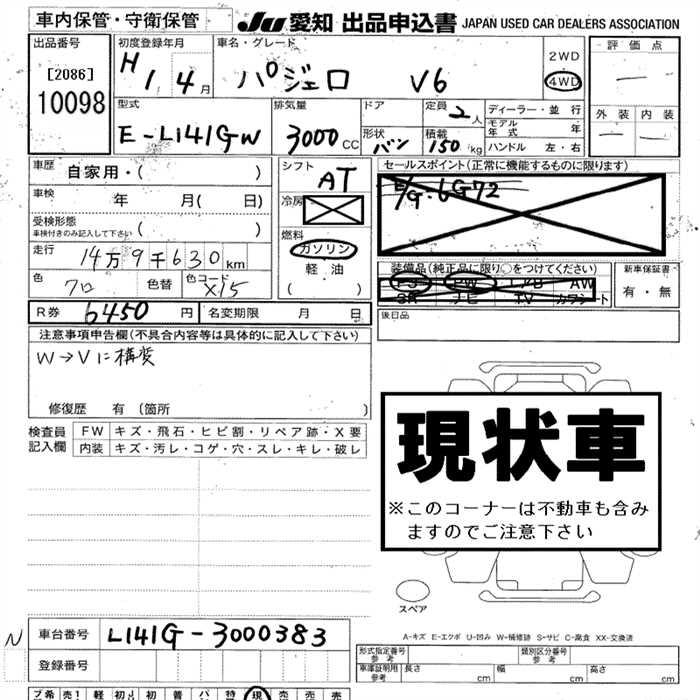 車内保管・守衛保管
JU 愛知 出品申込書 JAPAN USED CAR DEALERS ASSOCIATION
出品番号
[2086]
10098
初度登録年月
H1 4月
車名・グレード
パジェロ V6
2WD
4WD
評価点
ー
外装 内装
ー ー
型式
E-L141GW
排気量
3000CC
ドア
形状 バン
定員 2人
積載 150kg
ディーラー・並行
モデル年式 年
ハンドル 左・右
車歴 自家用・( )
車検 年 月( 日)
受検形態
車検付きのみ記入して下さい ( )
走行 14万9千630km
色 クロ 色替 色コード X15
シフト
AT
冷房
燃料
ガソリン
軽油
( )
セールスポイント(正常に機能するものに限ります)
E/G・6G72
装備品(純正品に限り○をつけてください)
PS PW エアB AW
SR ナビ TV カワシート
新車保証書
有・無
後日品
R券 6450円 名変期限 月 日
注意事項申告欄(不具合内容等は具体的に記入して下さい)
W→Vに構変
修復歴 有(箇所 )
検査員記入欄
FW キズ・飛石・ヒビ割・リペア跡・X要
内装 キズ・汚レ・コゲ・穴・スレ・キレ・破レ
現状車
※このコーナーは不動車も含み
ますのでご注意下さい
スペア
A-キズ E-エクボ U-凹み W-補修跡 S-サビ C-腐食 XX-交換済
N
車台番号 L141G-3000383
登録番号
形式指定番号 参考
類別区分番号 参考
車庫証明用 参考 長さ cm 幅 cm 高さ cm